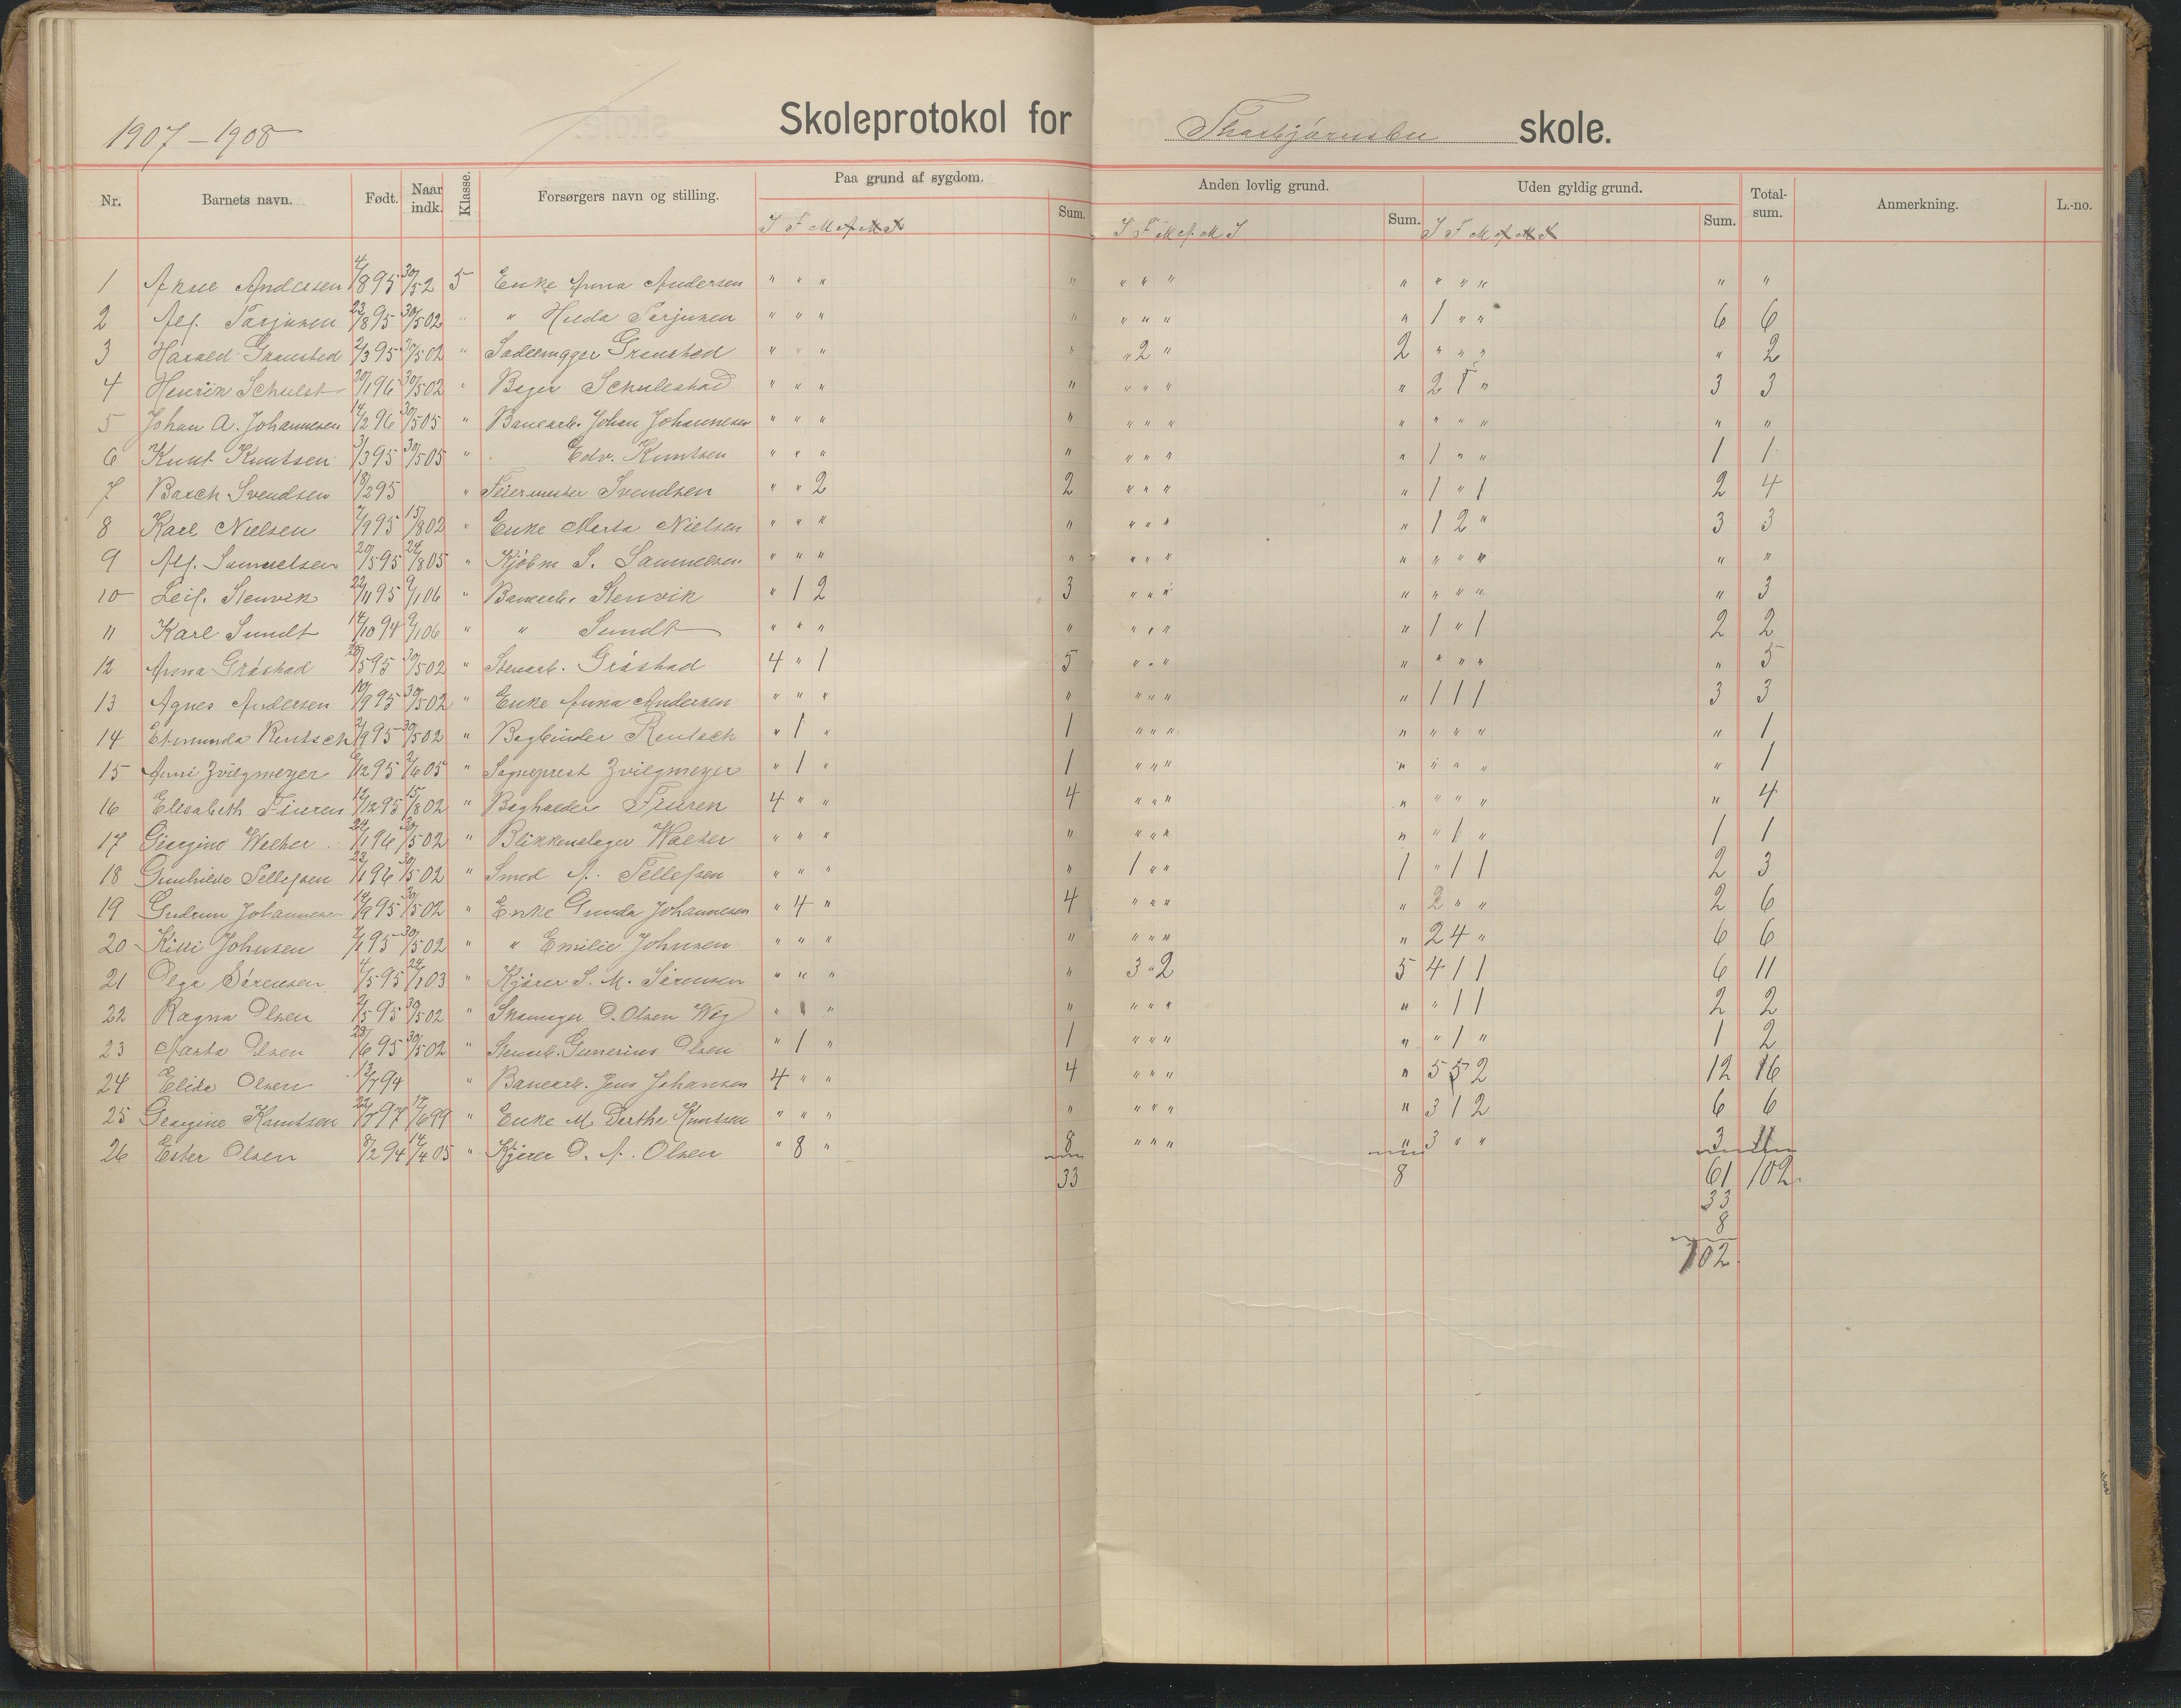 1907-1908 Skoleprotokol for Thorbjørnsbu skole.
Nr. Barnets navn. Født. Naar indk. Klasse. Forsørgers navn og stilling. Paa grund af sygdom. Sum. Anden lovlig grund. Sum. Uden gyldig grund. Sum. Total-sum. Anmerkning. L.-no.
1 Aksel Andersen 4/8 95 30/5 2 5 Enke Anna Andersen " " " " " " " " " " " " "
2 Alf. Terjusen 23/8 95 30/5 02 " " Hilda Terjusen " " " " " " " " 1 " " 6 6
3 Harald Grønsted 2/3 95 30/5 02 " Sadelmager Grønstad " " " " " 2 " 2 " " " " 2
4 Henrik Schulst 20/1 96 30/5 02 " Bager Schulestad " " " " " " " " 2 1 " 3 3
5 Johan A. Johannesen 14/2 96 30/5 05 " Banearb. Johan Johannesen " " " " " " " " " " " " "
6 Knut Knutsen 31/3 95 30/5 05 " Edv. Knutsen " " " " " " " " 1 " " 1 1
7 Barth Svendsen 18/2 95 " Feiermester Svendsen " " 2 2 " " " " 1 " 1 2 4
8 Karl Nielsen 7/9 95 15/8 02 " Enke Marta Nielsen " " " " " " " " 1 2 " 3 3
9 Alf. Samuelsen 20/5 95 24/8 05 " Kjøbm S. Samuelsen " " " " " " " " " " " " "
10 Leif. Stenvik 22/11 95 9/1 06 " Banearb. Stenvik " 1 2 3 " " " " " " " " 3
11 Karl Sundt 14/10 94 9/1 06 " " Sundt " " " " " " " " 1 " 1 2 2
12 Anna Gråstad 28/5 95 30/5 02 " Stenarb. Gråstad 4 " 1 5 " " " " " " " " 5
13 Agnes Andersen 10/9 95 30/5 02 " Enke Anna Andersen " " " " " " " " 1 1 1 3 3
14 Edmunda Rentsch 2/9 95 30/5 02 " Bogbinder Rentsch " 1 " 1 " " " " " " " " 1
15 Anni Zwilgmeyer 6/12 95 2/6 05 " Sogneprest Zwilgmeyer " 1 " 1 " " " " " " " " 1
16 Elisabeth Fiuren 12/12 95 15/8 02 " Bogholder Fiuren 4 " " 4 " " " " " " " " 4
17 Georgine Welher 24/1 96 30/5 02 " Blikkenslager Wolher " " " " " " " " " 1 " 1 1
18 Gunhilde Tellefsen 23/1 96 30/5 02 " Smed A. Tellefsen " " " " 1 " " 1 " 1 1 2 3
19 Gudrun Johannesen 14/9 95 30/5 02 " Enke Gunda Johannesen " 4 " 4 " " " " 2 " " 2 6
20 Kikki Johnsen 7/1 95 30/5 02 " " Emilie Johnsen " " " " " " " " 2 4 " 6 6
21 Olga Sørensen 4/5 95 24/1 03 " Kjører S. M. Sørensen " " " " 3 " 2 5 4 1 1 6 11
22 Ragna Olsen 2/5 95 30/5 02 " Skomager O. Olsen Wig " " " " " " " " 1 1 2 2
23 Marta Olsen 28/6 95 30/5 02 " Stenarb. Gunerius Olsen " 1 " 1 " " " " " 1 " 1 2
24 Elida Olsen 13/7 94 " Banearb. Jens Johansen 4 " " 4 " " " " 5 5 2 12 16
25 Georgine Knutsen 22/7 97 17/6 99 " Enke M Dorthe Knutsen " " " " " " " " 3 1 2 6 6
26 Ester Olsen 8/2 94 14/4 05 " Kjører O. A. Olsen " 8 " 8 " " " " 3 " " 3 11
33 8 61 102.
33
8
102.